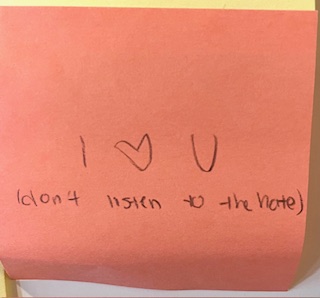 I ♡ U
(don't listen to the hate)